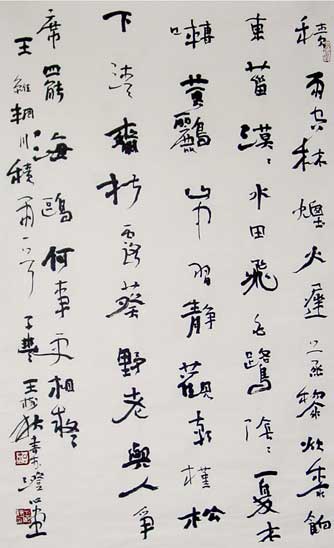 積雨空林煙火遲蒸黎炊黍餉
東菑漠〻水田飛白鷺陰〻夏木
囀黃鸝山中習靜觀朝槿松
下清齋折露葵野老與人爭
席罷海鷗何事更相疑
王維輞川積雨 王 書於澄